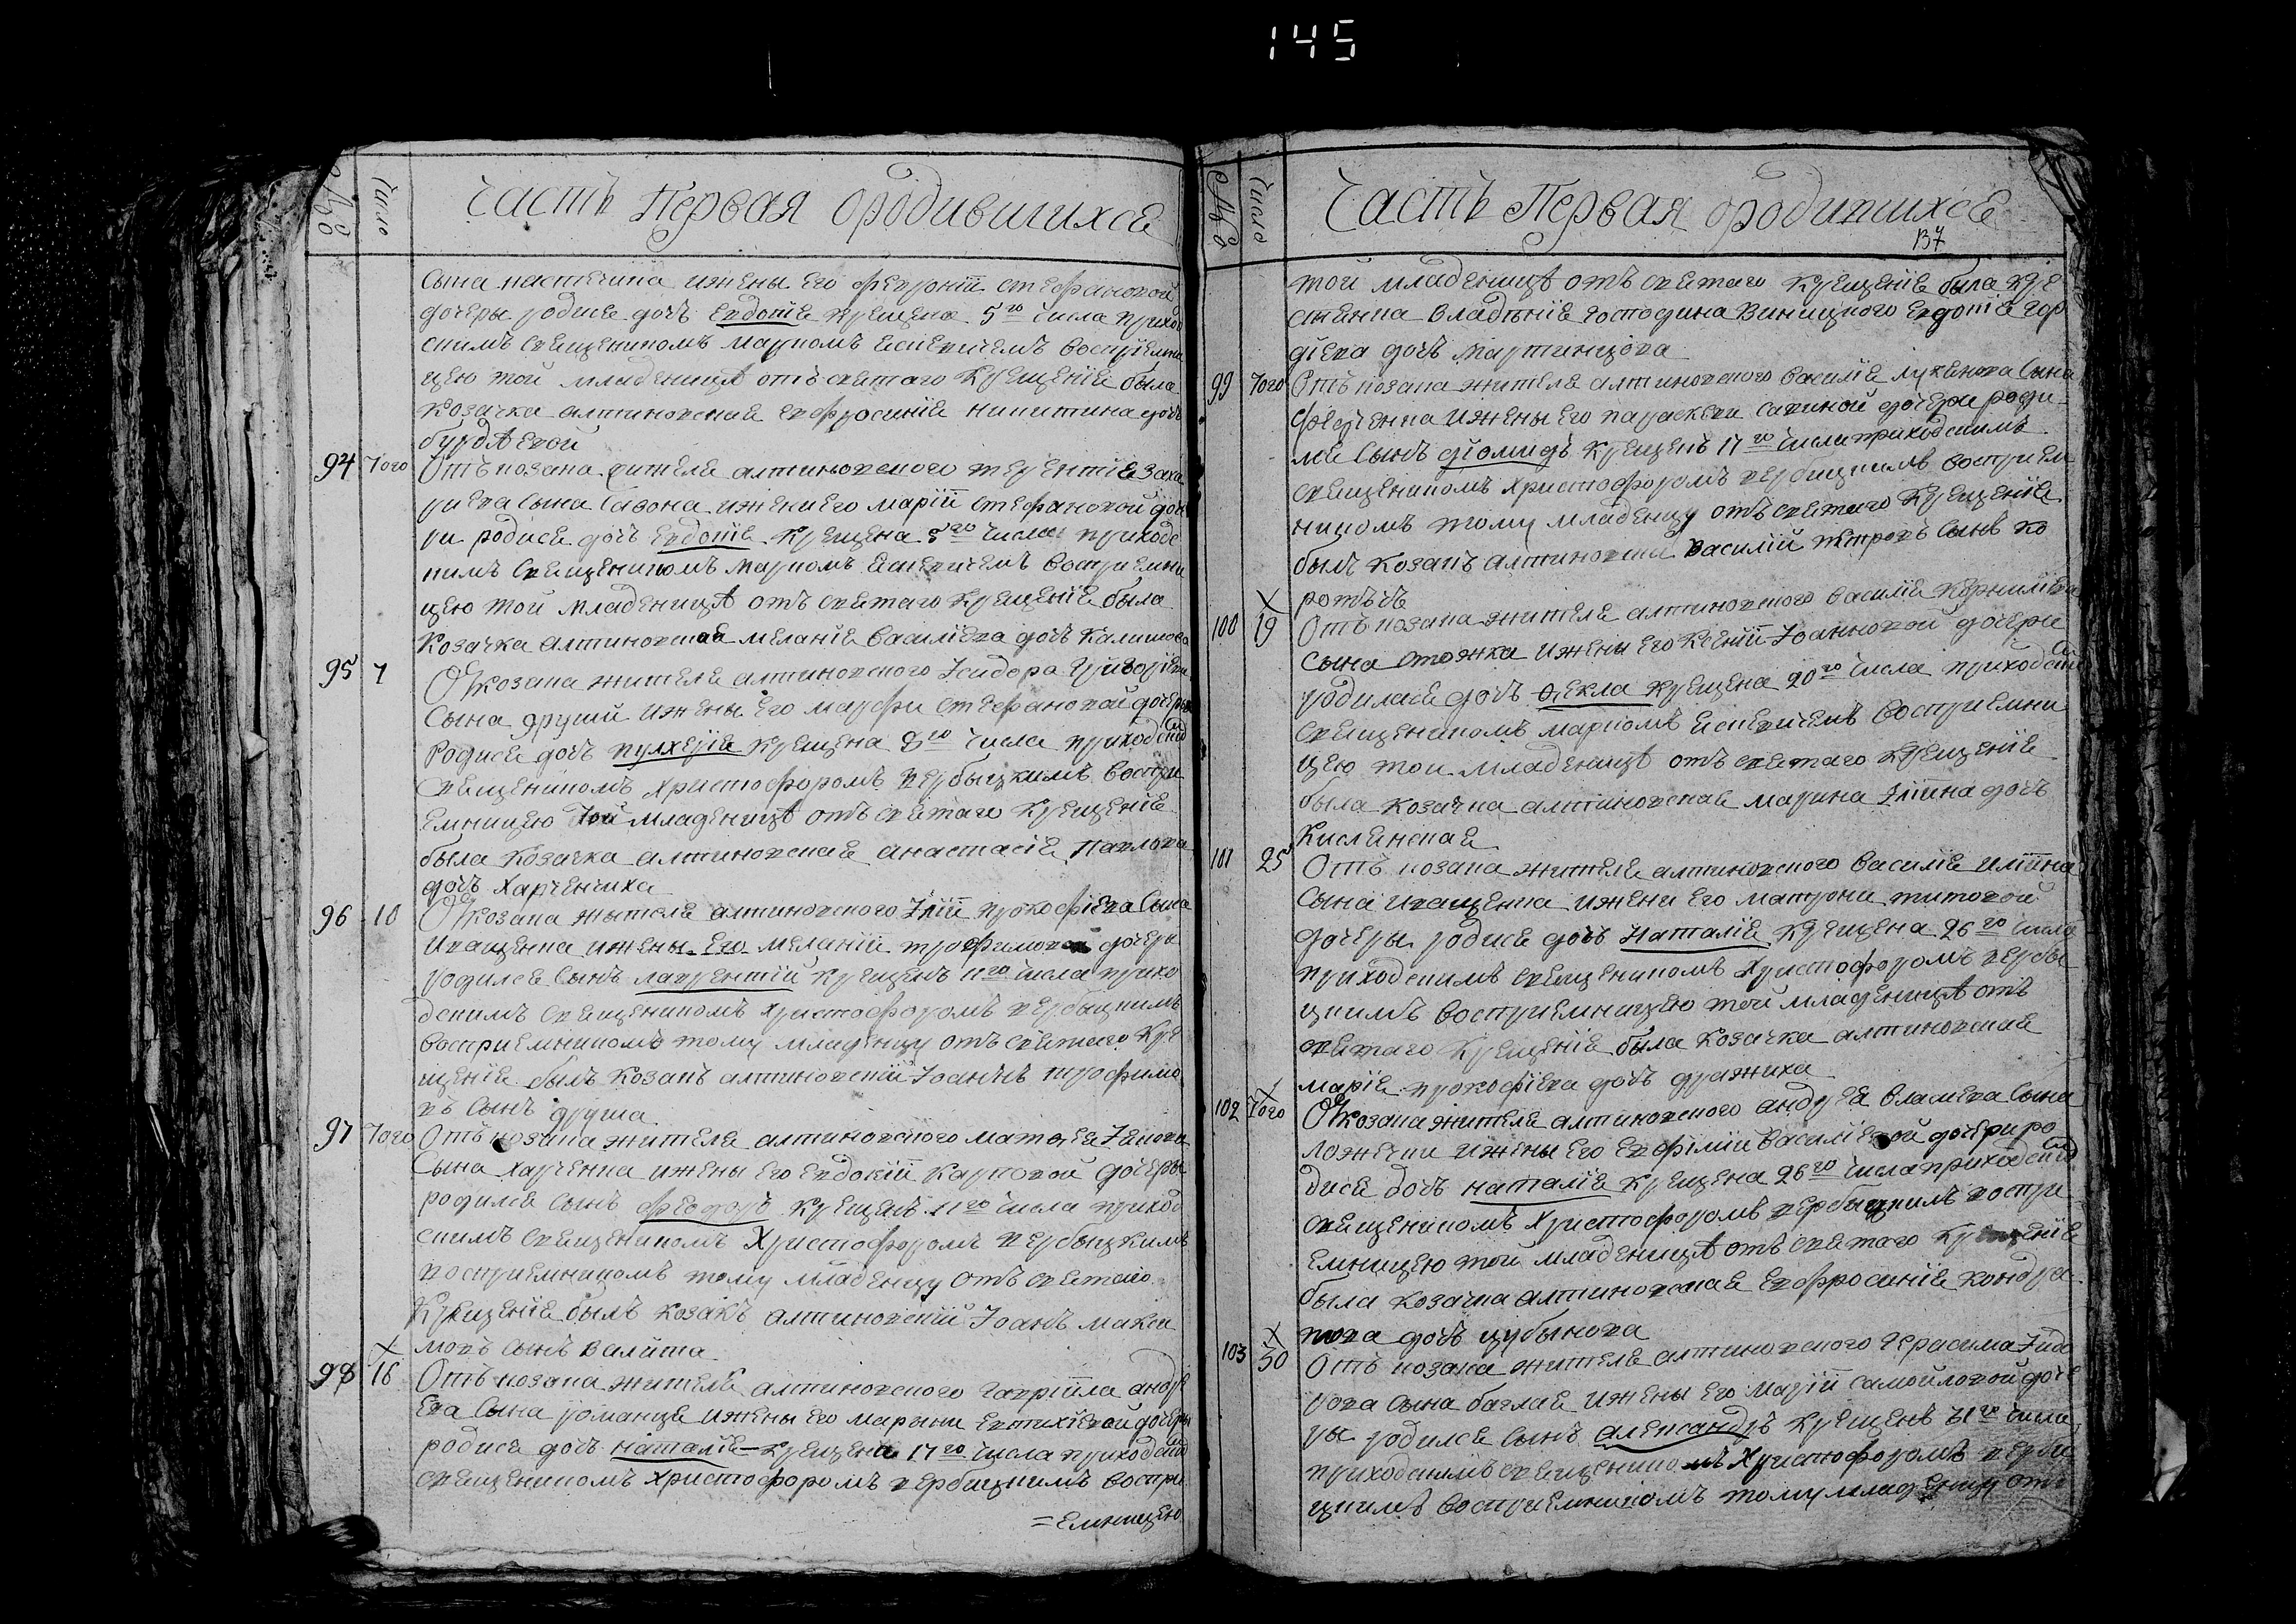 145
№
Число
Часть Первая ородившихсе
сына ижены его стефановой
дочеры родисе дочь Евдокіе крещена 5го числа приход
скимъ свещеникомъ Маркомъ воспріемни
цею той младеницѣ отъ светаго крещеніе была
Козачка алтиновская Евфросиніе никитина дочь
94 Того Отъ козака жителе алтиновского терентіе Заха
риева сына Сазона ижени его маріи стефановой доч
ри родисе дочь Евдокіе крещена 5го числа приходс
кимъ свещеникомъ Маркомъ воспріемни
цею той младеницѣ отъ светаго крещеніе была
Козачка алтиновская меланіе василіева дочь
95 7 От козака жителе алтиновского Ісидора Григоріева
Сына друши ижены его марфи стефановой дочеры
Родисе дочь пулхеріе крещена 8го числа приходски
свещеникомъ Христофоромъ вербыцкимъ воспри
емницею той младеницѣ отъ светаго крещеніе
была козачка алтиновская анастасіе павлова
дочь Харченчиха
96 10 От козака жытеле алтиновского Іліи прокофіева Сына
Иващенка ижены его меланіи трофимовой дочери
родилсе сынъ лаврентій крещенъ 11го числа прихо
дскимъ свещеникомъ Христофоромъ вербыцкимъ
воспріемникомъ тому младенцу отъ светаго кре
щеніе былъ козакъ алтиновскій Іоаннъ трофимо
въ сынъ друша
97 Того Отъ козака жителе алтиновского матфеа
Сына харченка ижены его евдокіи карповой дочеры
родилсе сынъ феодоръ крещенъ 11го числа приход
скимъ свещеникомъ Христофоромъ вербыцкимъ
воспріемникомъ тому младенцу отъ светаго
крещеніе былъ козакъ алтиновскій Іоанъ макси
мовъ сынъ валита
98 16 Отъ козака жителе алтиновского гавріила андре
ева сына романца ижены его марини евтихіевой дочеры
родисе дочь наталіе крещена 17го числа приходски
свещеникомъ Христофоромъ вербицкимъ воспри
=емницею
№
Число
Часть Первая ородившихсе
137
той младеницѣ отъ светаго крещеніе была кре
стянка владѣніе господина Виницкого Евдокіе гор
діева дочь мартинцова
99 Того Отъ козака жителе алтиновского василіе лукьянова сына
федченка ижены его параскеви савиной дочери роди
лсе сынъ діомидъ крещенъ 17го числа приходскимъ
свещеникомъ Христофоромъ вербицкимъ воспріем
никомъ тому младенцу отъ светаго крещеніе
былъ козакъ алтиновскій василій петровъ сынъ ко
ротъ
100 19 Отъ козака жителе алтиновского василіе корниліева
сына ижены его Ксеніи Іоанновой дочери
родиласе дочь Ѳекла крещена 20го числа приходски
свещеникомъ маркомъ воспріемни
цею той младеницѣ отъ светаго крещеніе
была козачка алтиновская марина Іліина дочь
Кислинская
101 25 Отъ козака жителе алтиновского василіе иліина
сына иващенка ижени его матрони титовой
дочеры родисе дочь Наталіе крещена 26го числа
приходскимъ свещеникомъ Христофоромъ вербы
цкимъ воспріемницею той младеницѣ отъ
светаго крещеніе была козачка алтиновская
маріе прокофіева дочь дражиха
102 Того От козака жителе алтиновского андреа власиева сына
ложечки ижены его евфіміи василіевой дочери ро
дисе дочь наталіе крещена 26го числа приходски
свещеникомъ Христофоромъ вербыцкимъ воспри
емницею той младеницѣ отъ светаго крещеніе
была козачка алтиновская евфросиніе кондра
това дочь цубынова
103 30 Отъ козака жителе алтиновского герасима
сына баглае ижены его маріи самойловой доче
ры родилсе сынъ александръ крещенъ 31го числа
приходскимъ свещеникомъ Христофоромъ верби
цкимъ воспріемникомъ тому младенцу отъ